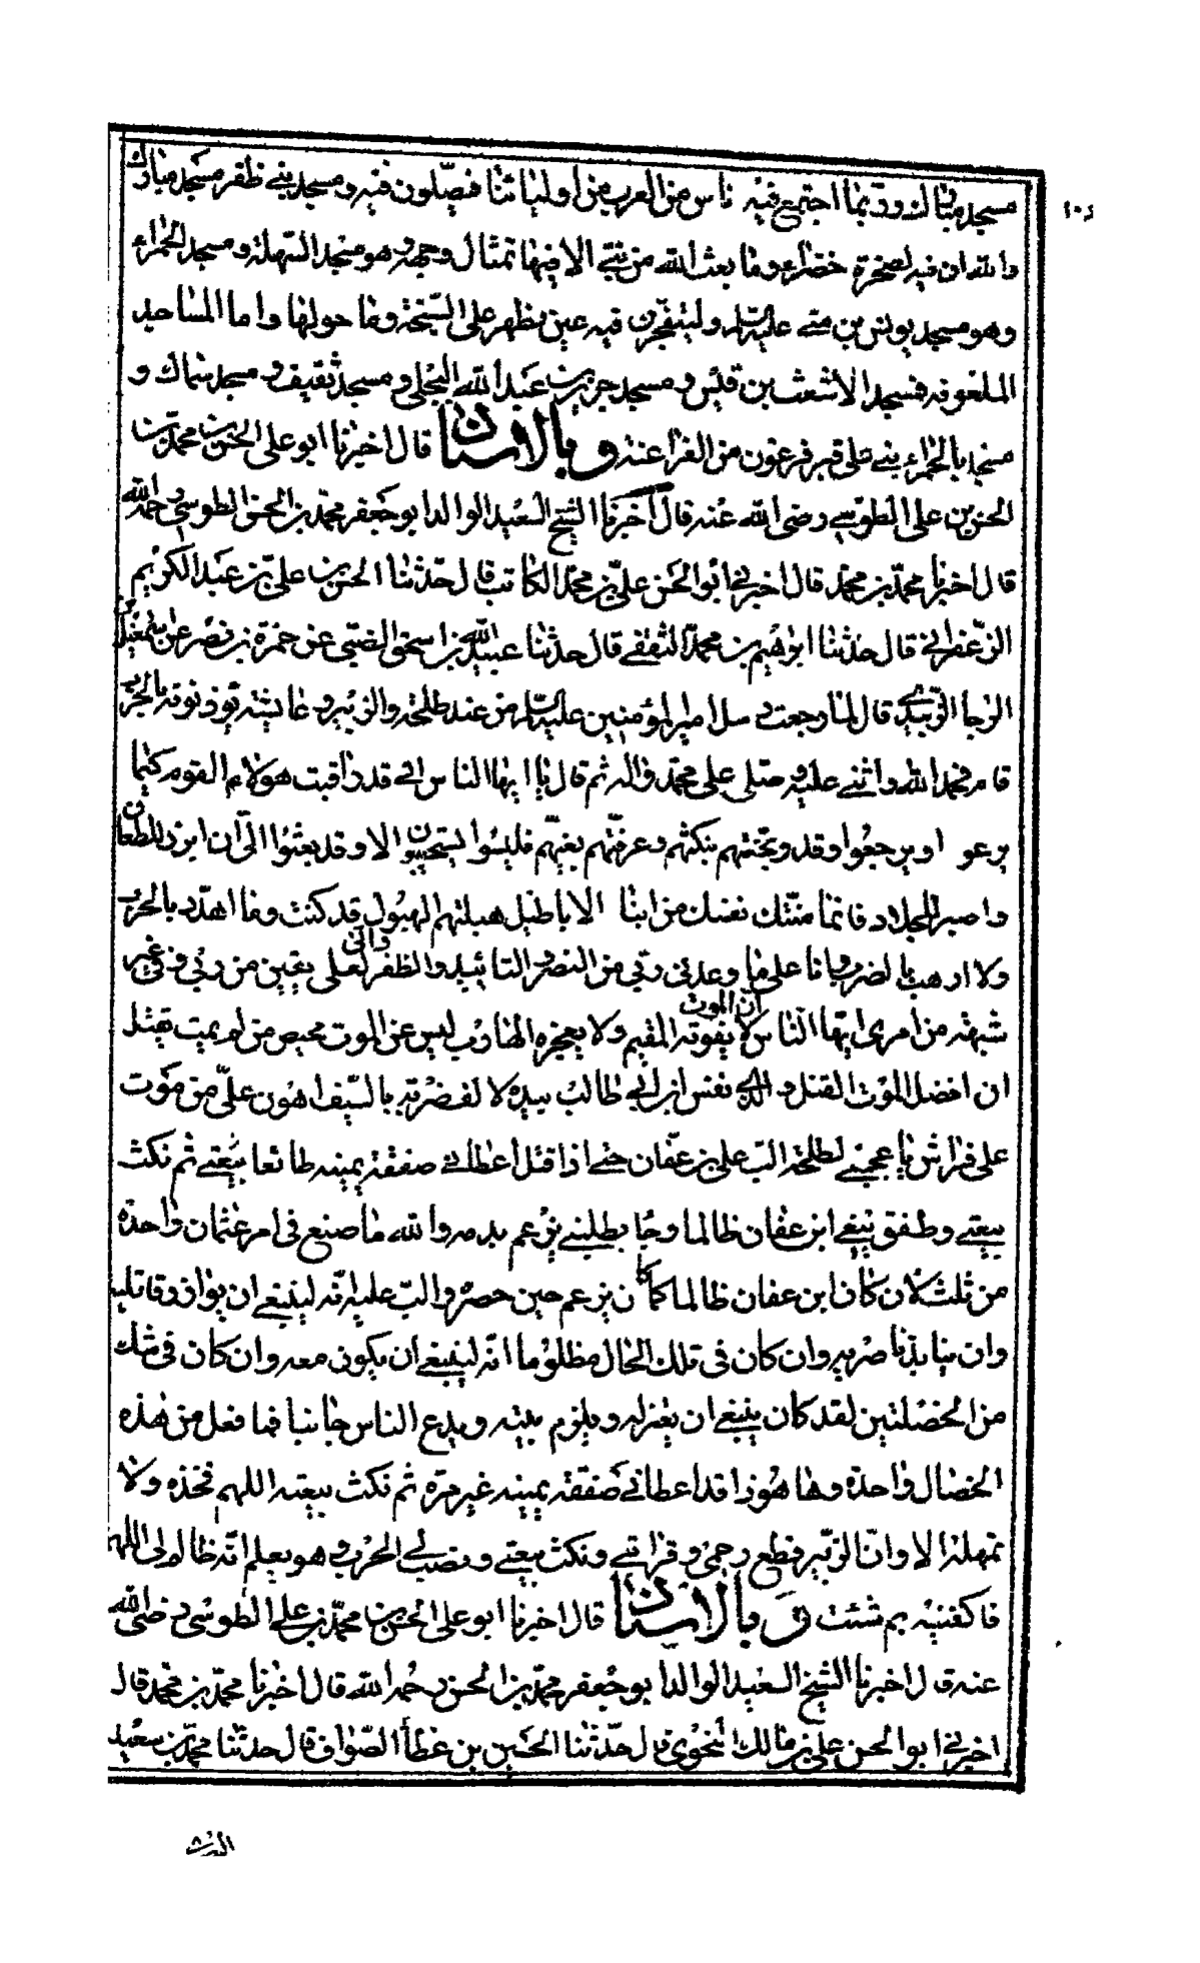 ١٠٤
مسجد مبارك وربما اجتمع فيه ناس من العرب من اوليائنا فيصلون فيه ومسجد بني ظفر مسجد مبارك
والله ان فيه لصخرة خضراء وما بعث الله من نبي الا فيها تمثال وجهه وهو مسجد السهلة ومسجد الحمراء
وهو مسجد يونس بن متى عليه السلام ولينفجرن فيه عين يظهر على السبخة وما حولها واما المساجد
الملعونه فمسجد الاشعث بن قيس ومسجد جرير بن عبد الله البجلي ومسجد ثقيف ومسجد سماك و
مسجد بالحمراء بني على قبر فرعون من الفراعنة وبالاسناد قال اخبرنا ابو علي الحسن بن محمد بن
الحسن بن علي الطوسي رضي الله عنه قال اخبرنا الشيخ السعيد الوالد ابو جعفر محمد بن الحسن الطوسي رحمه الله
قال اخبرنا محمد بن محمد قال اخبرني ابو الحسن علي بن محمد الكاتب قال حدثنا الحسن بن علي بن عبد الكريم
الزعفراني قال حدثنا ابراهيم بن محمد الثقفي قال حدثنا عبيد الله بن اسحق الضبي عن حمزة بن نصر عن اسمعيل بن
الرجا الزبيدي قال لما رجعت رسل امير المؤمنين عليه السلام من عند طلحة والزبير وعايشة يؤذنونه بالحرب
قام فحمد الله واثنى عليه وصلى على محمد واله ثم قال يا ايها الناس اني قد راقبت هولاء القوم كيما
يرعووا او يرجعوا وقد وبختهم بنكثهم وعرفتهم بغيهم فليسوا يستجيبون الا وقد بعثوا الي ان ابرز للطعان
واصبر للجلاد فانما منتك نفسك من ابنا الاباطيل هبلتهم الهبول قد كنت وما اهدد بالحرب
ولا ارهب بالضرب وانا على ما وعدني ربي من النصر والتاييد والظفر واني لعلى يقين من ربي وفي غير
شبهة من امري ايها الناس ان الموت لا يفوته المقيم ولا يعجزه الهارب ليس عن الموت محيص من لم يمت يقتل
ان افضل الموت القتل والذي نفس ابن ابي طالب بيده لالف ضربة بالسيف اهون علي من موت
على فراش يا عجبي لطلحة الب على بن عفان حتى اذا قتل اعطاني صفقة يمينه طائعا بيعتي ثم نكث
بيعتي وطفق ينعى ابن عفان ظالما وجا يطلبني يزعم بدمه والله ما صنع في امر عثمان واحدة
من ثلث لان كان ابن عفان ظالما كما كان يزعم حين حصره والب عليه انه لينبغي ان يوازر قاتليه
وان ينابذ ناصريه وان كان في تلك الحال مظلوما انه لينبغي ان يكون معه وان كان في شك
من الخصلتين لقد كان ينبغي ان يعتزله ويلزم بيته ويدع الناس جانبا فما فعل من هذه
الخصال واحدة وها هو ذا قد اعطاني صفقة يمينه غير مرة ثم نكث بيعته اللهم فخذه ولا
تمهله الا وان الزبير قطع رحمي وقرابتي ونكث بيعتي ونصب لي الحرب وهو يعلم انه ظالم لي اللهم
فاكفنيه بم شئت وبالاسناد قال اخبرنا ابو علي الحسن بن محمد بن علي الطوسي رضي الله
عنه قال اخبرنا الشيخ السعيد الوالد ابو جعفر محمد بن الحسن رحمه الله قال اخبرنا محمد بن محمد قال
اخبرني ابو الحسن علي بن مالك النحوي قال حدثنا الحسين بن عطا الصواف قال حدثنا محمد بن سعيد